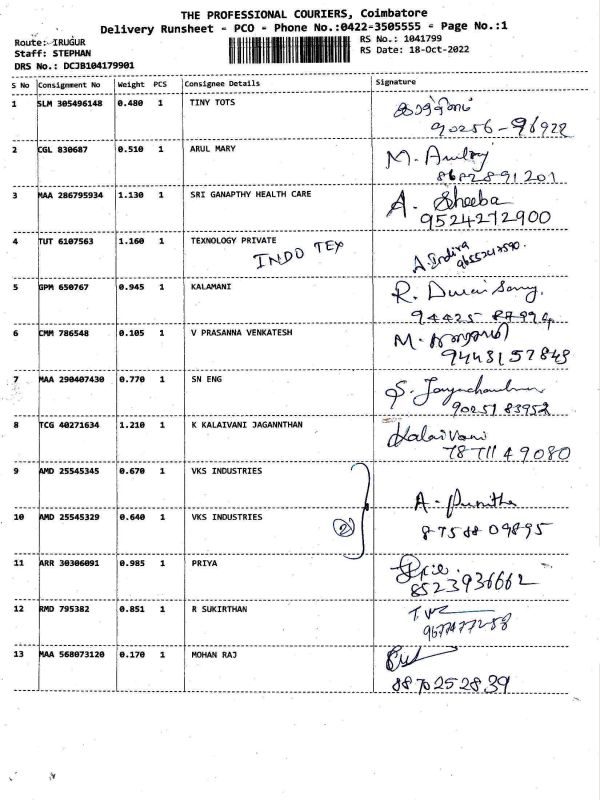 THE PROFESSIONAL COURIERS, Coimbatore
Delivery Runsheet - PCO - Phone No.:0422-3505555 - Page No.:1
Route: IRUGUR
RS No.: 1041799
Staff: STEPHAN
RS Date: 18-Oct-2022
DRS No.: DCJB104179901
S No Consignment No Weight PCS Consignee Details Signature
1 SLM 305496148 0.480 1 TINY TOTS
90256-96922
2 CGL 830687 0.510 1 ARUL MARY M.
8682891201
3 MAA 286795934 1.130 1 SRI GANAPTHY HEALTH CARE A. Sheeba
9524272900
4 TUT 6107563 1.160 1 TEXNOLOGY PRIVATE
INDO TEX A. Indira
5 GPM 650767 0.945 1 KALAMANI R. Durai Samy.
94425
6 CMM 786548 0.105 1 V PRASANNA VENKATESH M.
9443157849
7 MAA 290407430 0.770 1 SN ENG S.
90251 83952
8 TCG 40271634 1.210 1 K KALAIVANI JAGANNTHAN Kalaivani
78711 49080
9 AMD 25545345 0.670 1 VKS INDUSTRIES
A. Punitha
10 AMD 25545329 0.640 1 VKS INDUSTRIES 2
87588 09895
11 ARR 30306091 0.985 1 PRIYA
8523936662
12 RMD 795382 0.851 1 R SUKIRTHAN
9677477258
13 MAA 568073120 0.170 1 MOHAN RAJ
8870252839